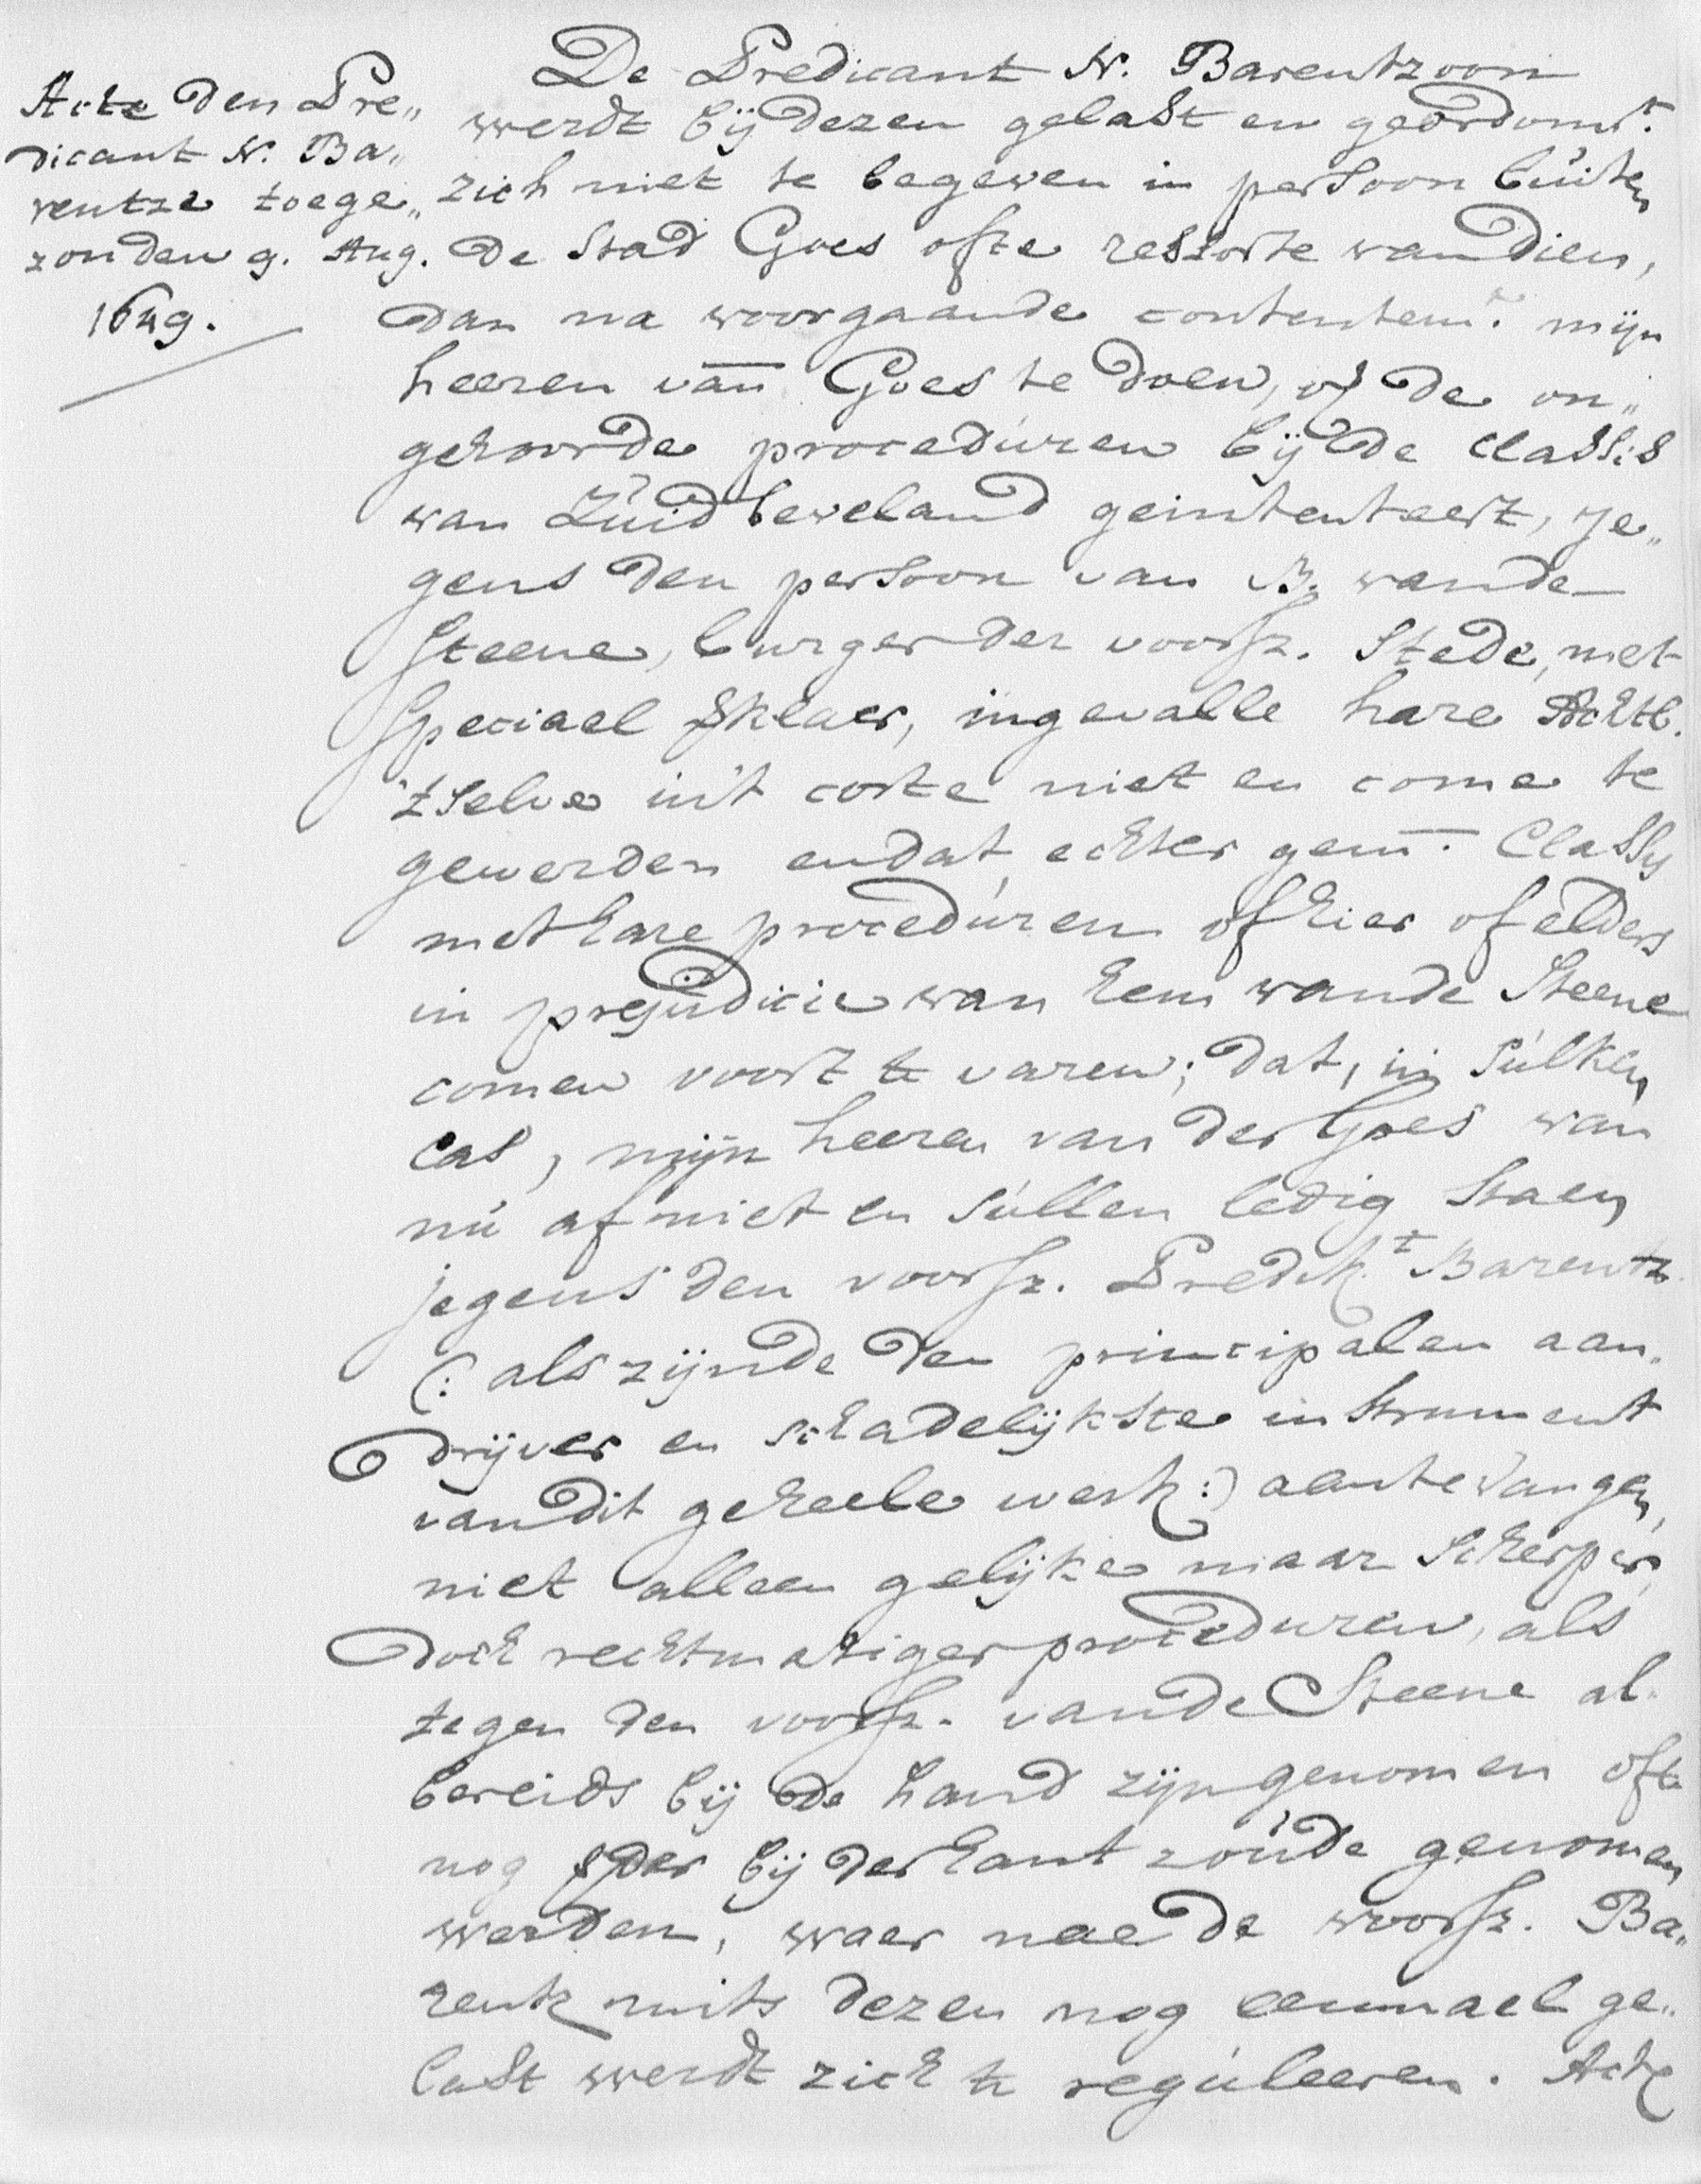 Acte den Pre„
dicant N. Ba„
rentze toege„
zonden 9. Aug.
1649.
De Predicant N. Barentzoon
werdt bij dezen gelast en geordonnt.
zich niet te begeven in persoon buiten
de Stad Goes ofte ressorte van dien,
dan na voorgaande contentemt. mijn
heeren van Goes te doen, of de on„
gehoorde proceduren bij de classis
van Zuidbeveland geintenteert, je„
gens den persoon van B. vande
Steene, burger der voorsz. Stede, met
speciael verklaer, ingevalle hare Achtb.
'tselve in't corte niet en come te
gewerden en dat echter gem. Classis
met hare proceduren of hier of elders
in prejudicie van hem vande Steene
comen voort te varen; dat, in sulken
cas, mijn heeren van der Goes van
nu af niet en sullen ledig staen
jegens den voorsz. Predikt Barentz.
(: als zijnde den principalen aan„
drijver en schadelijkste instrument
van dit geheele werk :) aen te vangen,
niet alleen gelijke maar scherper,
doch rechtmatiger proceduren, als
tegen den voorsz. vande Steene al„
bereids bij de hand zijn genomen ofte
nog der bij der hant zoude genomen
werden, waer nae de voorsz. Ba„
rentz mits dezen nog eenmael ge„
last werdt zich te reguleeren. Acte